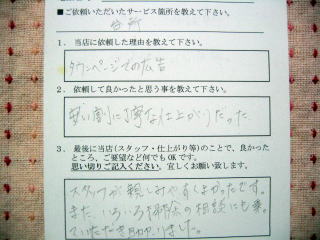 ■ご依頼いただいたサービス箇所を教えて下さい。
台所
1. 当店に依頼した理由を教えて下さい。
タウンページでの広告
2. 依頼して良かったと思う事を教えて下さい。
安い割に丁寧な仕上がりだった
3. 最後に当店(スタッフ・仕上がり等)のことで、良かった
ところ、ご要望など何でもOKです。
思い切りご記入ください。宜しくお願い致します。
スタッフが親しみやすくよかったです。
また、いろいろ掃除の相談にも乗っ
ていただき助かりました。